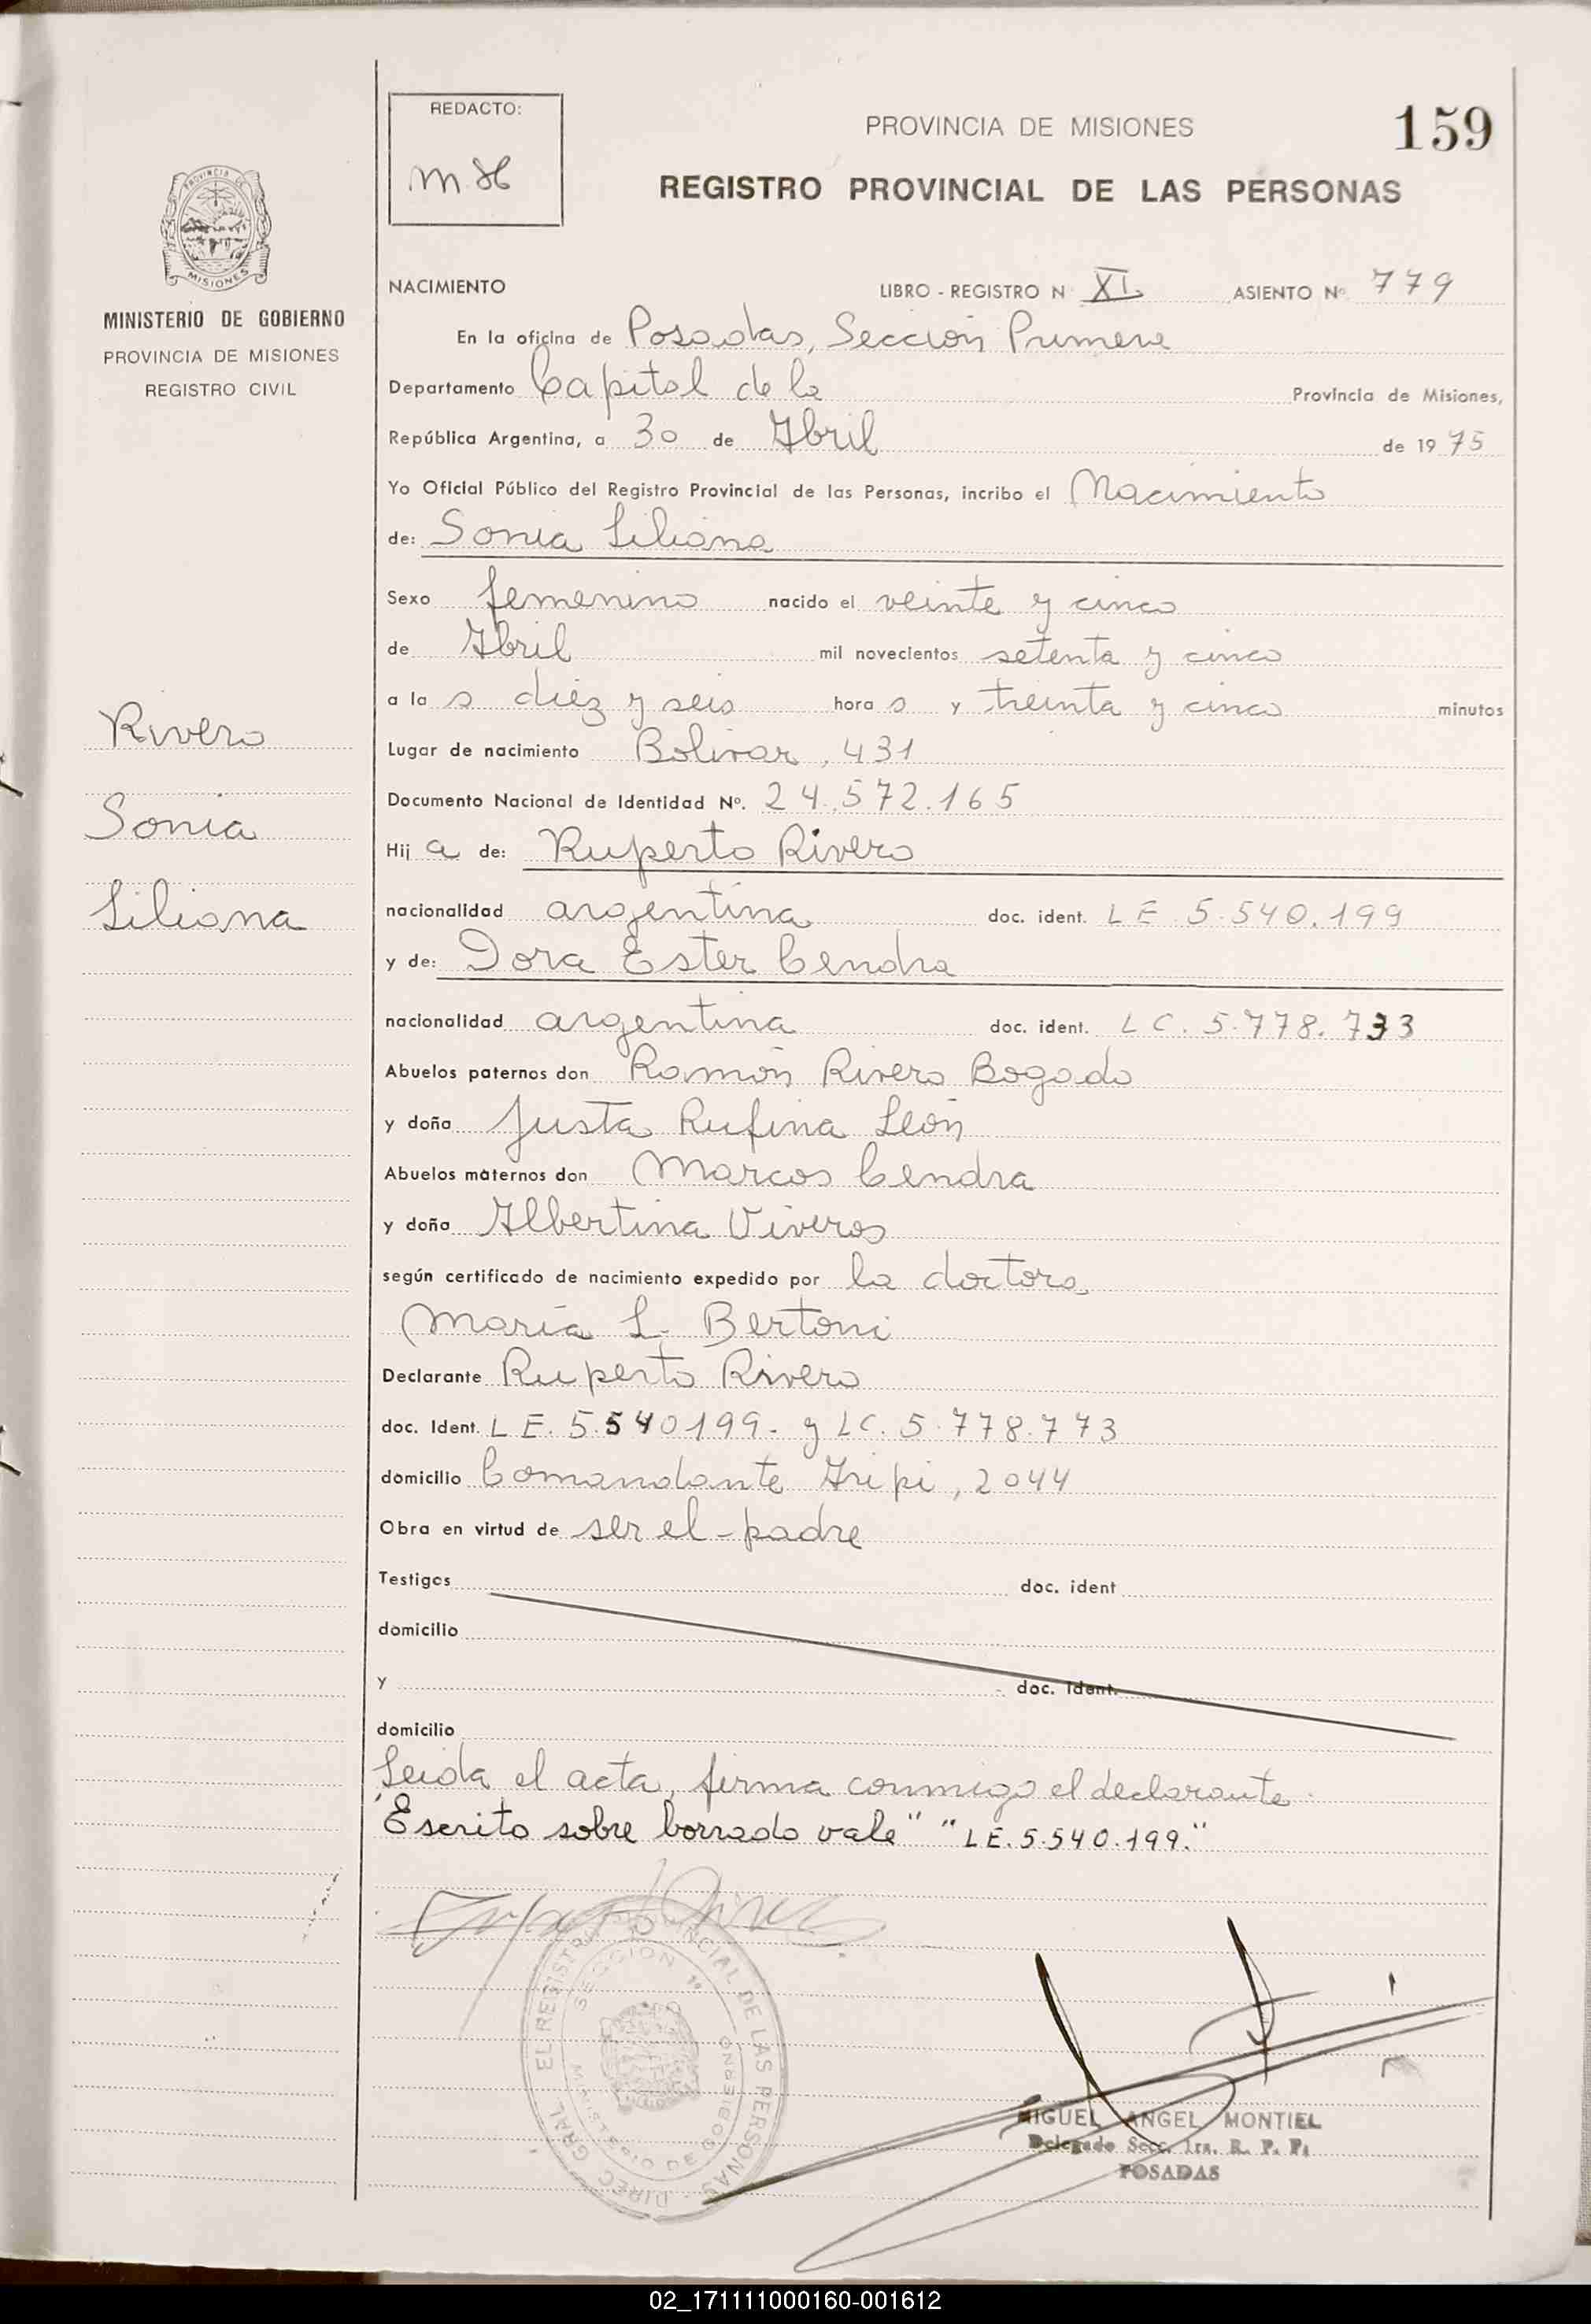 REDACTO:
m.H
PROVINCIA DE MISIONES
159
REGISTRO PROVINCIAL DE LAS PERSONAS
PROVINCIA DE
MISIONES
MINISTERIO DE GOBIERNO
PROVINCIA DE MISIONES
REGISTRO CIVIL
NACIMIENTO LIBRO - REGISTRO N XI ASIENTO Nº 779
En la oficina de Posadas, Sección Primera
Departamento Capital de la Provincia de Misiones,
República Argentina, a 30 de Abril de 1975
Yo Oficial Público del Registro Provincial de las Personas, incribo el Nacimiento
de: Sonia Liliana
Sexo femenino nacido el veinte y cinco
de Abril mil novecientos setenta y cinco
a la s diez y seis hora s y treinta y cinco minutos
Rivero
Lugar de nacimiento Bolivar, 431
Documento Nacional de Identidad Nº. 24.572.165
Sonia
Hij a de: Ruperto Rivero
Liliana
nacionalidad argentina doc. ident. LE 5.540.199
y de: Dora Ester Cendra
nacionalidad argentina doc. ident. LC. 5.778.733
Abuelos paternos don Ramón Rivero Bogado
y doña Justa Rufina León
Abuelos maternos don Marcos Cendra
y doña Albertina Viveros
según certificado de nacimiento expedido por la doctora
María L. Bertoni
Declarante Ruperto Rivero
doc. Ident. LE. 5.540199. y LC. 5.778.773
domicilio Comandante Aripi, 2044
Obra en virtud de ser el padre
Testigos doc. ident
domicilio
y doc. ident.
domicilio
Leida el acta, firma conmigo el declarante.
"Escrito sobre borrado vale" "LE. 5.540.199."
DIREC GRAL EL REGISTRO PROVINCIAL DE LAS PERSONAS
SECCION 1ª
MINISTERIO DE GOBIERNO
MIGUEL ANGEL MONTIEL
Delegado Secc. 1ra. R. P. P.
POSADAS
02_171111000160-001612